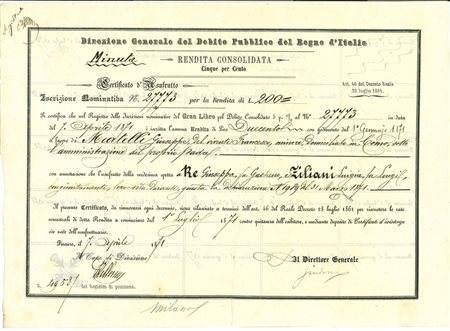 Direzione Generale del Debito Pubblico del Regno d'Italia
Minuta
RENDITA CONSOLIDATA
Cinque per Cento
Certificato d'Usufrutto
Art. 46 del Decreto Reale
28 luglio 1861.
Iscrizione Nominativa N. 27773 per la Rendita di L. 200=
Si certifica che nel Registro delle iscrizioni nominative del Gran Libro pel Debito Consolidato 5 p. % al N. 27773 in data
del 7 Aprile 1871 è iscritta l'annua Rendita di Lire Duecento in godimento dal 1° Gennaio 1871
a favore di Martelli Giuseppe del vivente Francesco, minore, domiciliato in Como, sotto
l'amministrazione del proprio padre
con annotazione che l'usufrutto della medesima spetta a Re Giuseppa, fu Gaetano, Ziliani Luigia, fu Luigi
congiuntamente, loro vita durante, giusta la dichiarazione N. del 31 Marzo 1871.
Il presente Certificato, da rinnovarsi ogni decennio, viene rilasciato a termini dell'art. 46 del Reale Decreto 28 luglio 1861 per riscuotere le rate
semestrali di detta Rendita a cominciare dal 1° luglio 1871 contro quitanza dell'esibitore, e mediante deposito di Certificato d'esistenza
in vita dell'usufruttuario.
Firenze, il 7 Aprile 1871
Il Capo di Divisione
Il Direttore Generale
N. 14953
del Registro di posizione.
Milano